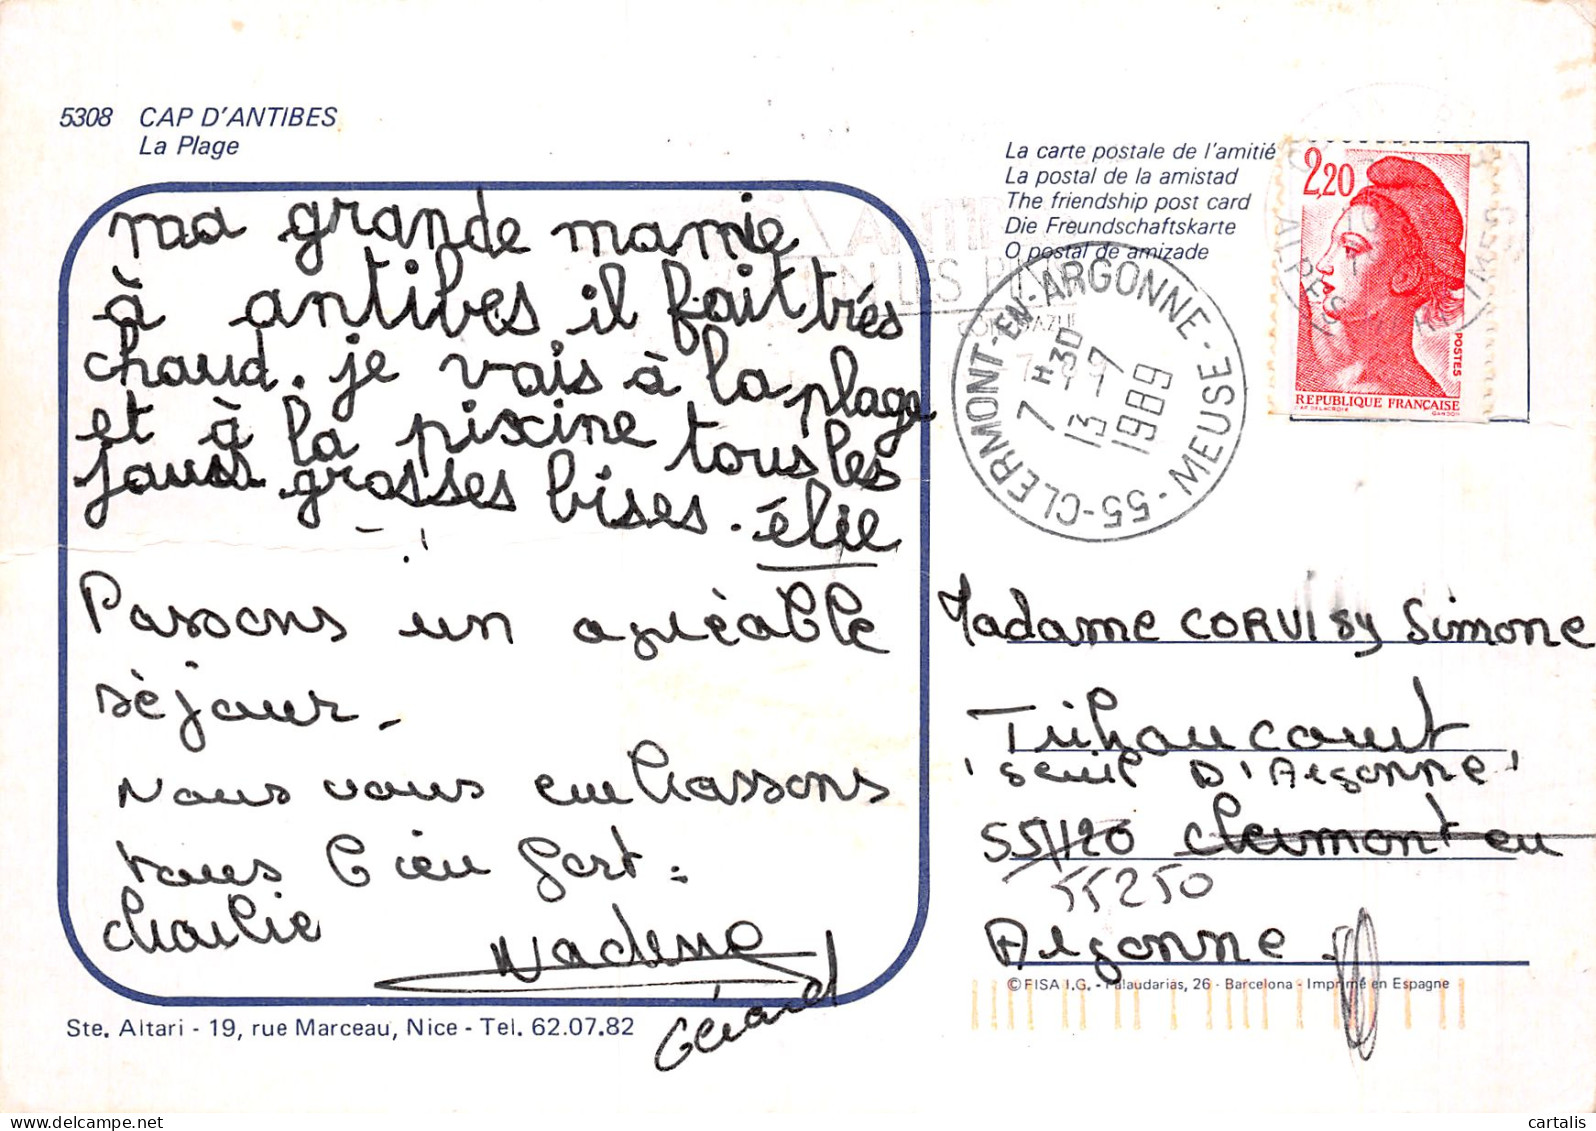 5308 CAP D'ANTIBES
La Plage
ma grande mamie
à antibes il fait très
chaud. je vais à la plage
et à la piscine tous les
jours grosses bises. élie
Passons un agréable
séjour.
Nous vous embrassons
tous bien fort.
Charlie
Nadine
Gérard
Ste. Altari - 19, rue Marceau, Nice - Tel. 62.07.82
La carte postale de l'amitié
La postal de la amistad
The friendship post card
Die Freundschaftskarte
O postal de amizade
2,20
POSTES
REPUBLIQUE FRANÇAISE
CLERMONT-EN-ARGONNE - MEUSE - 55
7 H 30
13 - 7
1989
Madame CORVISY Simone
Triaucourt
'Seuil D'Argonne'
55120 Clermont en
55250
Argonne.
© FISA I.G. - Palaudarias, 26 - Barcelona - Imprimé en Espagne
cartalis